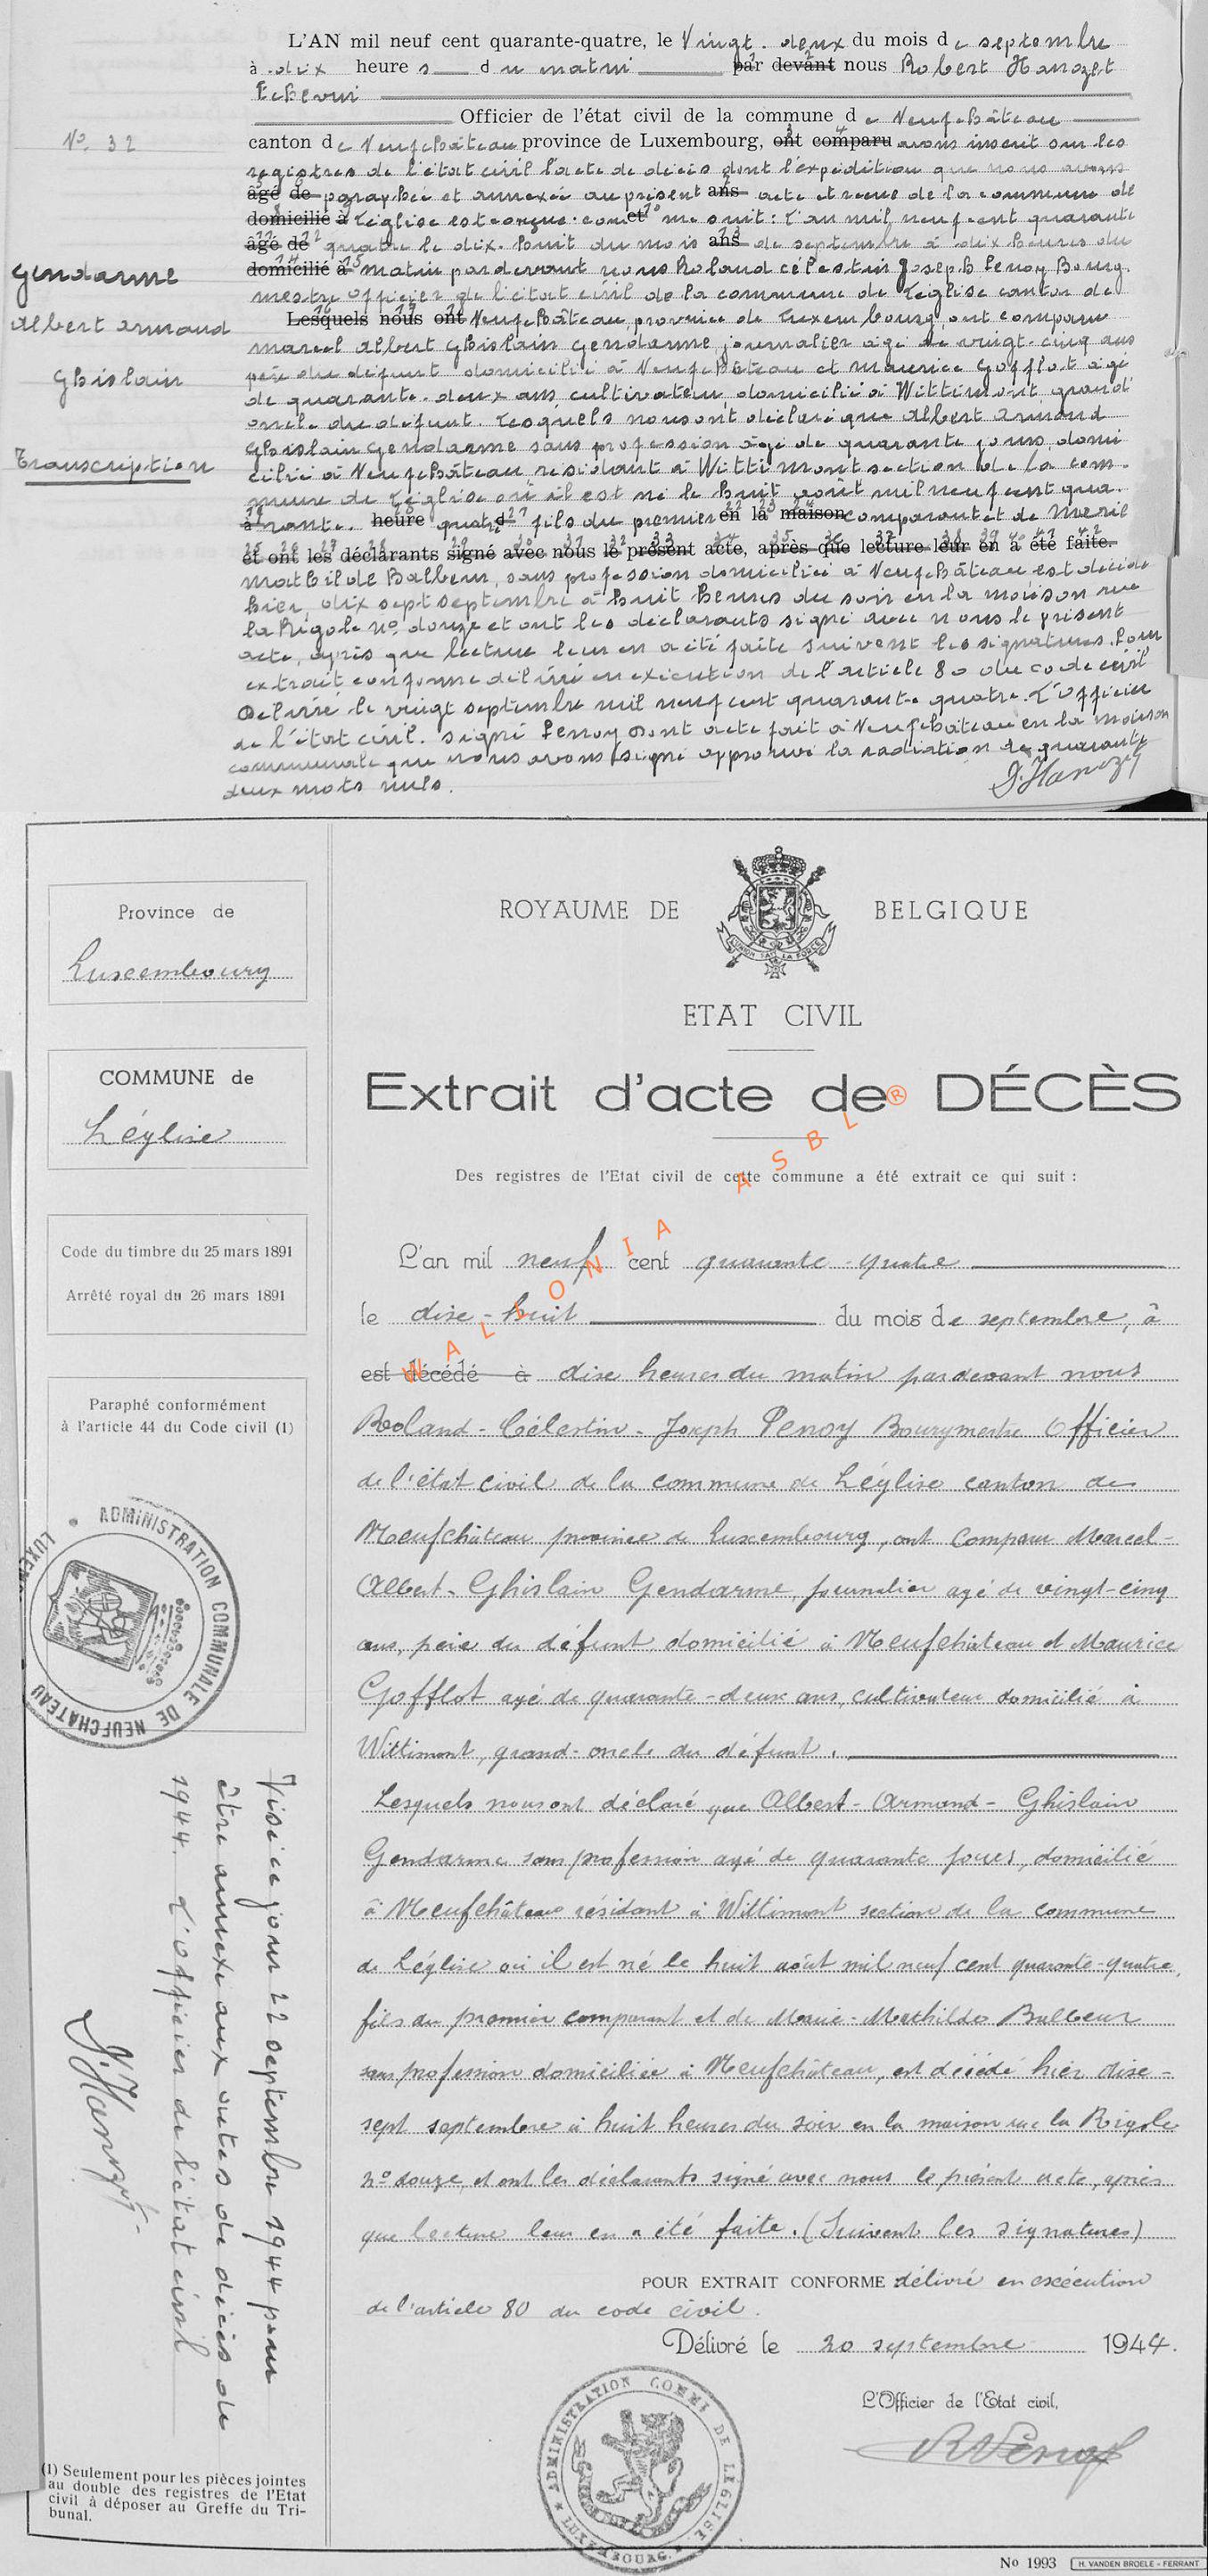 L'AN mil neuf cent quarante-quatre, le Vingt. deux du mois de septembre
à dix heures du matin par devant nous Robert Hanozet
Echevin
Officier de l'état civil de la commune de Neufchâteau
N° 32
canton de Neufchâteau province de Luxembourg, ont comparu avons inscrit sur les
registres de l'état civil l'acte de décès dont l'expédition que nous avons
âgé de paraphée et annexée au présent ans acte et reçue de la commune de
domicilié à Léglise est conçue comme et suit: L'an mil neuf cent quarante
âgé de quatre le dix-huit du mois ans de septembre à dix heures du
domicilié à matin pardevant nous Roland Célestin Joseph Penoy Bourg.
mestre officier de l'état civil de la commune de Léglise canton de
Lesquels nous ont Neufchâteau, province de Luxembourg, ont comparu
Marcel Albert Ghislain Gendarme journalier âgé de vingt-cinq ans
père du défunt domicilié à Neufchâteau et Maurice Gofflot âgé
de quarante-deux ans cultivateur, domicilié à Wittimont, grand
oncle du défunt. Lesquels nous ont déclaré que Albert Armand
Ghislain Gendarme sans profession âgé de quarante jours, domi
cilié à Neufchâteau, résidant à Wittimont section de la com.
mune de Léglise où il est né le huit août mil neuf cent qua.
à rante. heure quatre d fils du premier en la maison comparant et de Marie
et ont les déclarants signé avec nous le présent acte, après que lecture leur en a été faite.
Mathilde Balbeur, sans profession domiciliée à Neufchâteau est décédé
hier, dix sept septembre à huit heures du soir en la maison rue
la Rigole n° douze et ont les déclarants signé avec nous le présent
acte, après que lecture leur en a été faite suivent les signatures. Pour
extrait conforme délivré en exécution de l'article 80 du code civil
Délivré le vingt septembre mil neuf cent quarante quatre. L'officier
de l'état civil. signé Penoy Dont acte fait à Neufchâteau en la maison
communale que nous avons signé approuvé la radiation de quarante
deux mots nuls.
Gendarme
Albert Armand
Ghislain
Transcription
Province de
Luxembourg
COMMUNE de
Léglise
Code du timbre du 25 mars 1891
Arrêté royal du 26 mars 1891
Paraphé conformément
à l'article 44 du Code civil (1)
ADMINISTRATION COMMUNALE DE NEUFCHATEAU
Visé ce jour 22 septembre 1944 pour
être annexé aux actes de décès de
1944. L'officier de l'état civil
(1) Seulement pour les pièces jointes
au double des registres de l'Etat
civil à déposer au Greffe du Tri-
bunal.
ROYAUME DE BELGIQUE
L'UNION FAIT LA FORCE
ETAT CIVIL
Extrait d'acte de DÉCÈS
WALLONIA ASBL ®
Des registres de l'Etat civil de cette commune a été extrait ce qui suit :
L'an mil neuf cent quarante-quatre
le dix-huit du mois de septembre, à
est décédé à dix heures du matin pardevant nous
Roland-Célestin-Joseph Penoy Bourgmestre Officier
de l'état civil de la commune de Léglise canton de
Neufchâteau province de Luxembourg, ont comparu Marcel-
Albert-Ghislain Gendarme, journalier agé de vingt-cinq
ans, père du défunt domicilié à Neufchâteau et Maurice
Gofflot agé de quarante-deux ans, cultivateur domicilié à
Wittimont, grand-oncle du défunt.
Lesquels nous ont déclaré que Albert-Armand-Ghislain
Gendarme sans profession agé de quarante jours, domicilié
à Neufchâteau résidant à Wittimont section de la commune
de Léglise où il est né le huit août mil neuf cent quarante-quatre,
fils du premier comparant et de Marie-Mathilde Balbeur
sans profession domiciliée à Neufchâteau, est décédé hier dix-
sept septembre à huit heures du soir en la maison rue la Rigole
n° douze, et ont les déclarants signé avec nous le présent acte, après
que lecture leur en a été faite. (Suivent les signatures)
POUR EXTRAIT CONFORME délivré en exécution
de l'article 80 du code civil.
Délivré le 20 septembre 1944.
L'Officier de l'Etat civil,
ADMINISTRATION COMM. DE LÉGLISE
LUXEMBOURG
No 1993 H. VANDEN BROELE - FERRANT